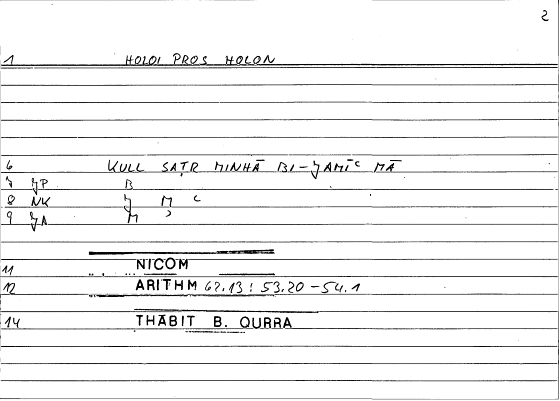 2
1 HOLOI PROS HOLON
6 KULL SAṬR MINHĀ BI-ǦAMĪʿ MĀ
7 ǦP B
8 NK Ǧ M ʿ
9 ǦA M ʾ
11 NICOM
12 ARITHM 62.13 : 53.20 - 54.1
14 THĀBIT B. QURRA